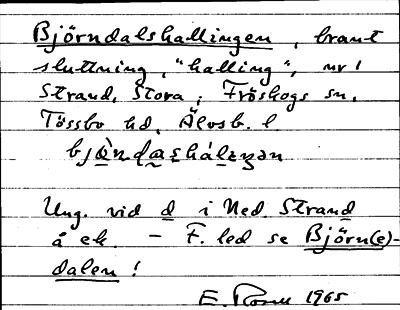 Björndalshallingen, brant
sluttning, "halling", nr 1
Strand, Stora; Fröskogs sn,
Tössbo hd, Älvsb. l
Ung. vid d i Ned. Strand
å ek. – F. led se Björn(e)-
dalen!
E. Rosu 1965